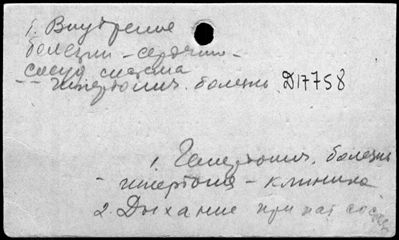 1. Внутрение
болезни – сердечно-
сосуд система
– – Гипертонич. болезнь D17758
1. Гипертонич. болезнь
– гипертония – клиника
2. Дыхание при пат сост